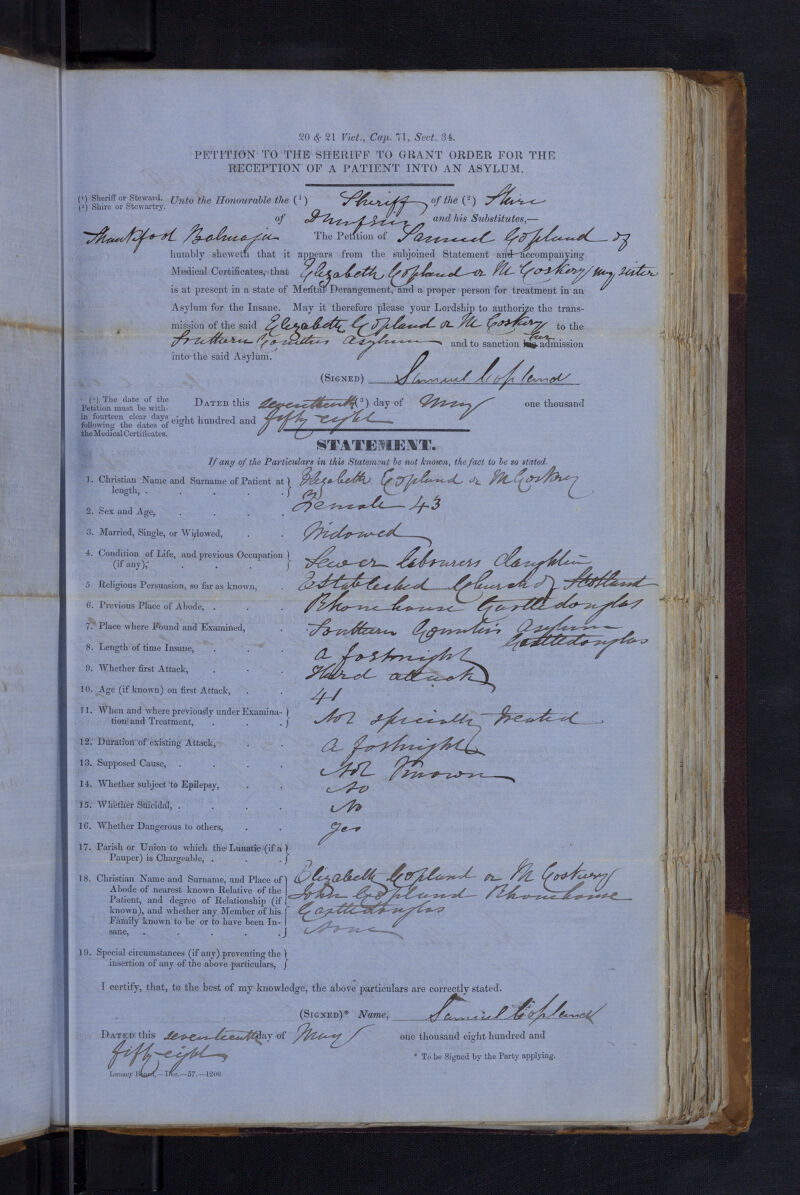 20 & 21 Vict., Cap. 71, Sect. 34.
PETITION TO THE SHERIFF TO GRANT ORDER FOR THE
RECEPTION OF A PATIENT INTO AN ASYLUM.
(¹) Sheriff or Steward.
(²) Shire or Stewartry.
Unto the Honourable the (¹) Sheriff of the (²) Shire
of Dumfries and his Substitutes,—
The Petition of Samuel Copland of
Balmagie
humbly sheweth that it appears from the subjoined Statement and accompanying
Medical Certificates, that Elizabeth Copland or McCoskery my sister
is at present in a state of Mental Derangement, and a proper person for treatment in an
Asylum for the Insane. May it therefore please your Lordship to authorize the trans-
mission of the said Elizabeth Copland or McCoskery to the
Southern Counties Asylum and to sanction his her admission
into the said Asylum.
(Signed) Samuel Copland
(³) The date of the
Petition must be with-
in fourteen clear days
following the dates of
the Medical Certificates.
Dated this seventeenth (³) day of May one thousand
eight hundred and fifty eight
STATEMENT.
If any of the Particulars in this Statement be not known, the fact to be so stated.
1. Christian Name and Surname of Patient at
length, . Elizabeth Copland or McCoskery
2. Sex and Age, Female 43
3. Married, Single, or Widowed, Widowed
4. Condition of Life, and previous Occupation
(if any), Sewer labourers daughter
5. Religious Persuasion, so far as known, Established Church of Scotland
6. Previous Place of Abode, Rhonehouse Castledouglas
7. Place where Found and Examined, Southern Counties Asylum
Castledouglas
8. Length of time Insane, a fortnight
9. Whether first Attack, Third attack
10. Age (if known) on first Attack, 41
11. When and where previously under Examina-
tion and Treatment, Not specially treated
12. Duration of existing Attack, a fortnight
13. Supposed Cause, Not Known
14. Whether subject to Epilepsy, No
15. Whether Suicidal, No
16. Whether Dangerous to others, yes
17. Parish or Union to which the Lunatic (if a
Pauper) is Chargeable,
18. Christian Name and Surname, and Place of
Abode of nearest known Relative of the
Patient, and degree of Relationship (if
known), and whether any Member of his
Family known to be or to have been In-
sane,
Elizabeth Copland or McCoskery
John Copland Rhonehouse
Castledouglas
None
19. Special circumstances (if any) preventing the
insertion of any of the above particulars,
I certify, that, to the best of my knowledge, the above particulars are correctly stated.
(Signed)* Name, Samuel Copland
Dated this seventeenth day of May one thousand eight hundred and
fifty eight
* To be Signed by the Party applying.
Lunacy Board,—Dec.—57.—1200.